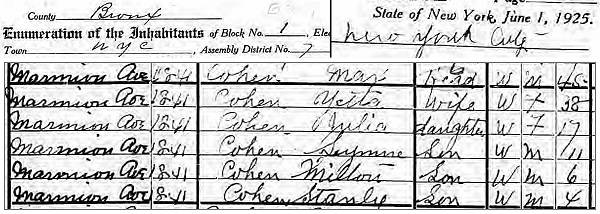 County Bronx
State of New York, June 1, 1925.
Enumeration of the Inhabitants of Block No. 1
Town NYC, Assembly District No. 7
New York City
Marmion Ave 1841 Cohen Max Head W M 45
Marmion Ave 1841 Cohen Yetta Wife W F 38
Marmion Ave 1841 Cohen Julia daughter W F 17
Marmion Ave 1841 Cohen Seymore Son W M 11
Marmion Ave 1841 Cohen Milton Son W M 6
Marmion Ave 1841 Cohen Stanly Son W M 4